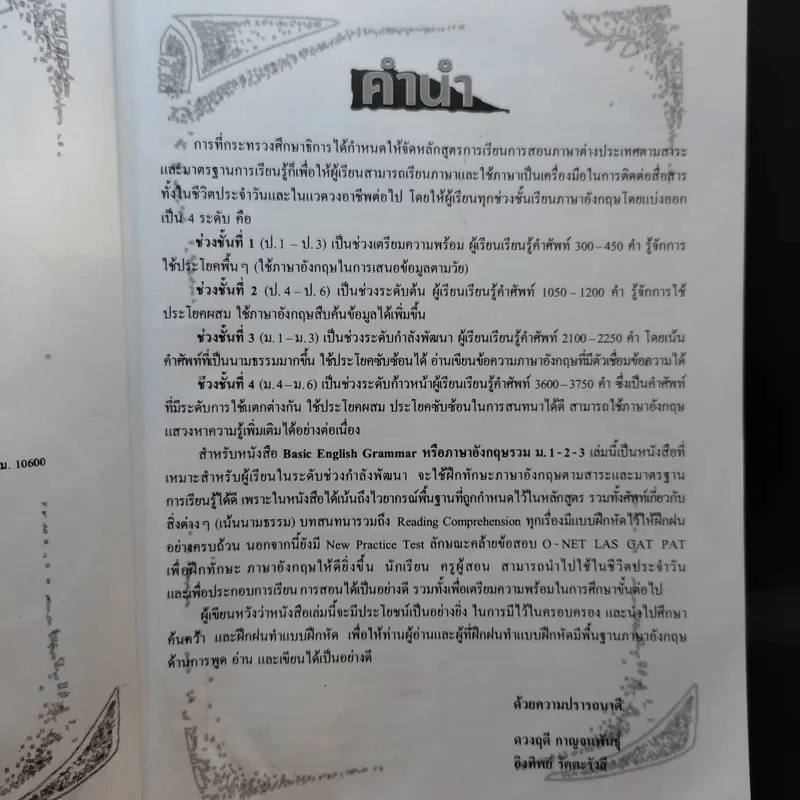 คำนำ
การที่กระทรวงศึกษาธิการได้กำหนดให้จัดหลักสูตรการเรียนการสอนภาษาต่างประเทศตามสาระ
และมาตรฐานการเรียนรู้ก็เพื่อให้ผู้เรียนสามารถเรียนภาษาและใช้ภาษาเป็นเครื่องมือในการติดต่อสื่อสาร
ทั้งในชีวิตประจำวันและในแวดวงอาชีพต่อไป โดยให้ผู้เรียนทุกช่วงชั้นเรียนภาษาอังกฤษโดยแบ่งออก
เป็น 4 ระดับ คือ
ช่วงชั้นที่ 1 (ป.1 – ป.3) เป็นช่วงเตรียมความพร้อม ผู้เรียนเรียนรู้คำศัพท์ 300 – 450 คำ รู้จักการ
ใช้ประโยคพื้น ๆ (ใช้ภาษาอังกฤษในการเสนอข้อมูลตามวัย)
ช่วงชั้นที่ 2 (ป.4 – ป.6) เป็นช่วงระดับต้น ผู้เรียนเรียนรู้คำศัพท์ 1050 – 1200 คำ รู้จักการใช้
ประโยคผสม ใช้ภาษาอังกฤษสืบค้นข้อมูลได้เพิ่มขึ้น
ช่วงชั้นที่ 3 (ม.1 – ม.3) เป็นช่วงระดับกำลังพัฒนา ผู้เรียนเรียนรู้คำศัพท์ 2100 – 2250 คำ โดยเน้น
คำศัพท์ที่เป็นนามธรรมมากขึ้น ใช้ประโยคซับซ้อนได้ อ่านเขียนข้อความภาษาอังกฤษที่มีตัวเชื่อมข้อความได้
ช่วงชั้นที่ 4 (ม.4 – ม.6) เป็นช่วงระดับก้าวหน้าผู้เรียนเรียนรู้คำศัพท์ 3600 – 3750 คำ ซึ่งเป็นคำศัพท์
ที่มีระดับการใช้แตกต่างกัน ใช้ประโยคผสม ประโยคซับซ้อนในการสนทนาได้ดี สามารถใช้ภาษาอังกฤษ
แสวงหาความรู้เพิ่มเติมได้อย่างต่อเนื่อง
สำหรับหนังสือ Basic English Grammar หรือภาษาอังกฤษรวม ม. 1 - 2 - 3 เล่มนี้เป็นหนังสือที่
เหมาะสำหรับผู้เรียนในระดับช่วงกำลังพัฒนา จะใช้ฝึกทักษะภาษาอังกฤษตามสาระและมาตรฐาน
การเรียนรู้ได้ดี เพราะในหนังสือได้เน้นถึงไวยากรณ์พื้นฐานที่ถูกกำหนดไว้ในหลักสูตร รวมทั้งศัพท์เกี่ยวกับ
สิ่งต่าง ๆ (เน้นนามธรรม) บทสนทนารวมถึง Reading Comprehension ทุกเรื่องมีแบบฝึกหัดไว้ให้ฝึกฝน
อย่างครบถ้วน นอกจากนี้ยังมี New Practice Test ลักษณะคล้ายข้อสอบ O - NET LAS GAT PAT
เพื่อฝึกทักษะ ภาษาอังกฤษให้ดียิ่งขึ้น นักเรียน ครูผู้สอน สามารถนำไปใช้ในชีวิตประจำวัน
และเพื่อประกอบการเรียน การสอนได้เป็นอย่างดี รวมทั้งเพื่อเตรียมความพร้อมในการศึกษาขั้นต่อไป
ผู้เขียนหวังว่าหนังสือเล่มนี้จะมีประโยชน์เป็นอย่างยิ่ง ในการมีไว้ในครอบครอง และนำไปศึกษา
ค้นคว้า และฝึกฝนทำแบบฝึกหัด เพื่อให้ท่านผู้อ่านและผู้ที่ฝึกฝนทำแบบฝึกหัดมีพื้นฐานภาษาอังกฤษ
ด้านการพูด อ่าน และเขียนได้เป็นอย่างดี
ด้วยความปรารถนาดี
ดวงฤดี กาญจนพันธุ์
อิงทิพย์ รัตตะรังสี
ม. 10600